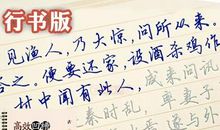 行书版
见渔人，乃大惊，问所从来。
答之。便要还家，设酒杀鸡作
村中闻有此人，
成来问讯
秦时乱，率妻子
遂与外
高效